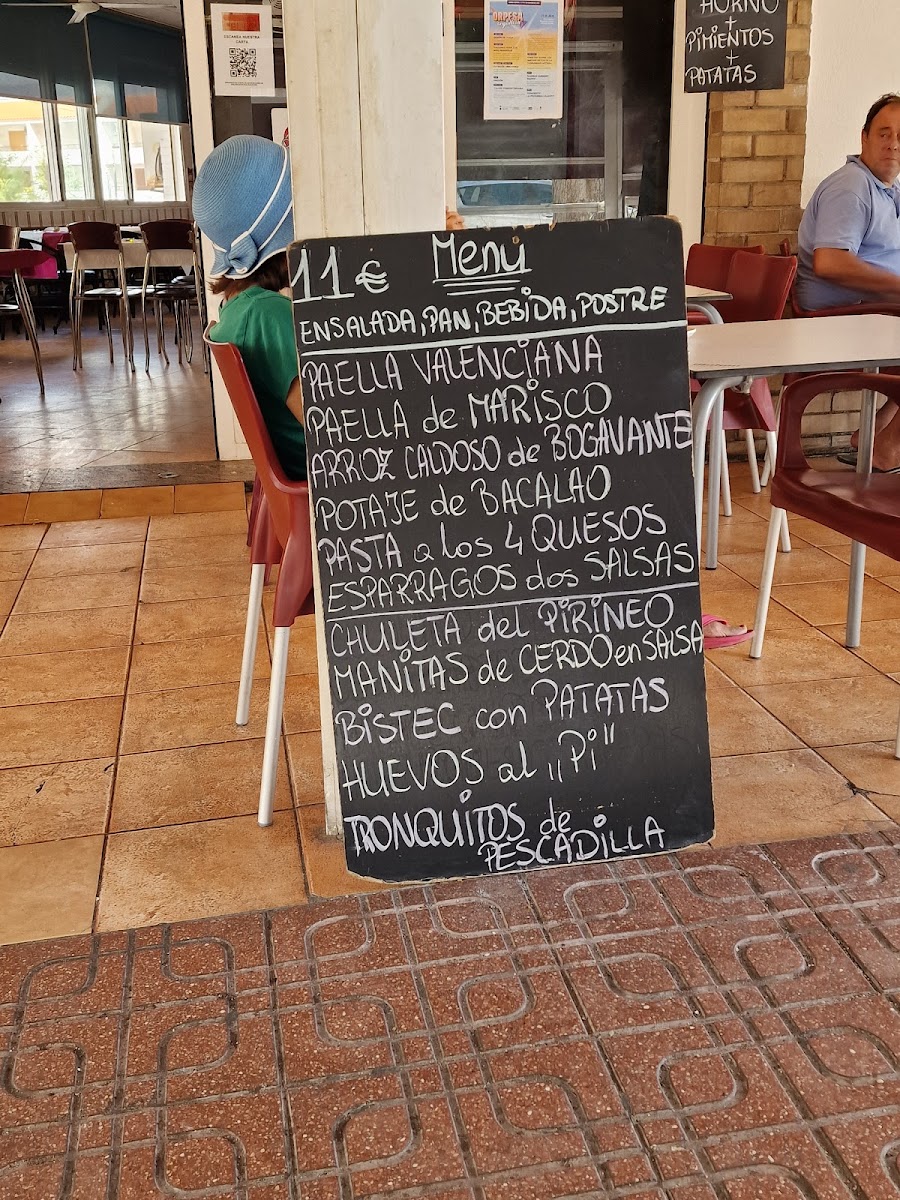 ESCANEA NUESTRA
CARTA
ORPESA
HORNO
+
PIMIENTOS
+
PATATAS
11 € Menú
ENSALADA, PAN, BEBIDA, POSTRE
PAELLA VALENCIANA
PAELLA de MARISCO
ARROZ CALDOSO de BOGAVANTE
POTAJE de BACALAO
PASTA a los 4 QUESOS
ESPARRAGOS dos SALSAS
CHULETA del PIRINEO
MANITAS de CERDO en SALSA
BISTEC con PATATAS
HUEVOS al „Pi"
TRONQUITOS de
PESCADILLA